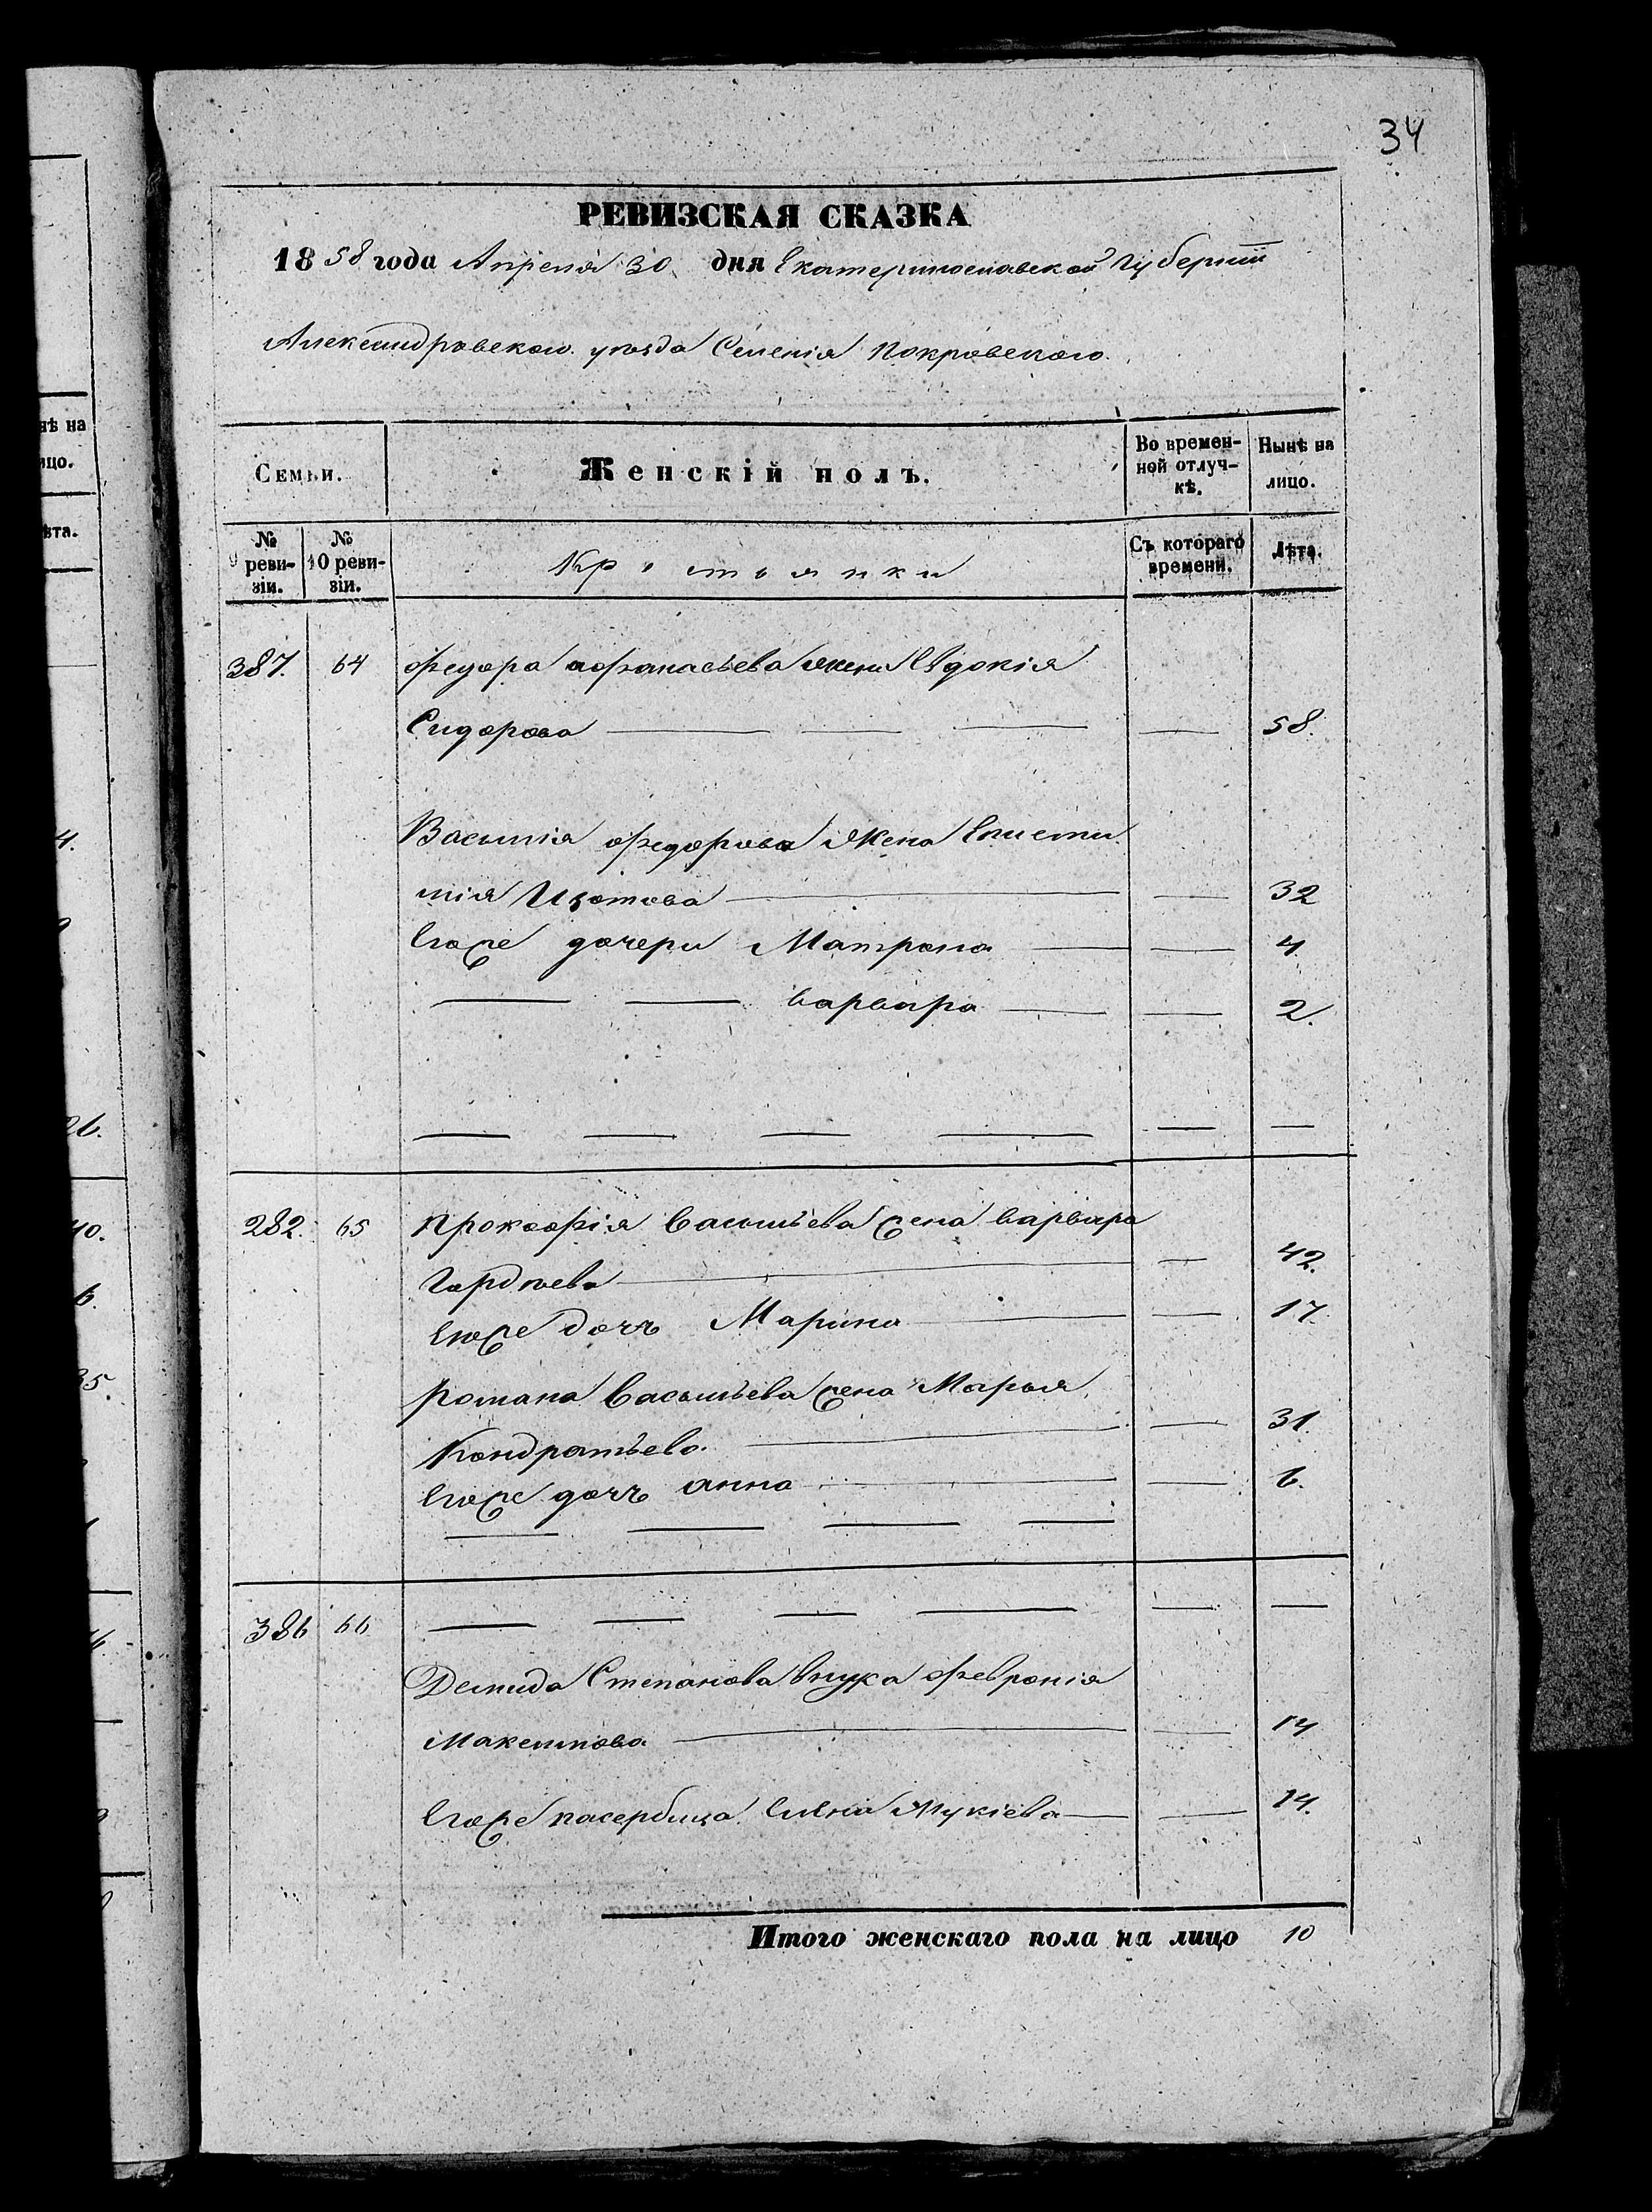 34
РЕВИЗСКАЯ СКАЗКА
1858 года Апреля 30 дня Екатеринославской Губерніи
Александровского уѣзда Селенія Покровского.
Семьи. Женскій полъ. Во времен- Нынѣ на
ной отлуч- лицо.
кѣ.
№ № Крестьянки Съ котораго Лѣта.
9 реви- 10 реви- времени.
зіи. зіи.
387. 64 Федора Афанасьева жена Евдокія
Сидорова 58.
Василія Федорова жена Еписти
мія Изотова 32
Егоже дочери Матрона 4
Варвара 2.
282. 65 Прокофія Васильева жена Варвара
Гордѣева 42.
Егоже дочь Марина 17.
Романа Васильева жена Марья
Кондратьева 31.
Егоже дочь Анна 6.
386 66
Демида Степанова внука Февронія
Максимова 14
Егоже пасербица 14.
Итого женскаго пола на лицо 10
нѣ на
ицо.
ѣта.
4.
26.
40.
6.
35.